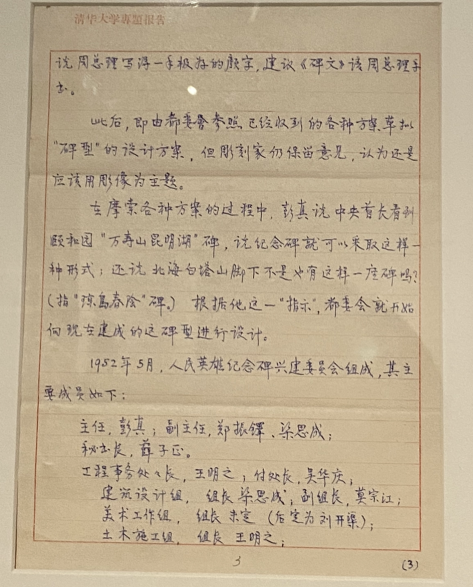 清华大学专题报告
说周总理写得一手极好的颜字,建议《碑文》请周总理手
书。
此后,即由都委会参照已经收到的各种方案草拟
"碑型"的设计方案,但雕刻家仍保留意见,认为还是
应该用雕像为主题。
在摩索各种方案的过程中,彭真说中央首长看到
颐和园"万寿山昆明湖"碑,说纪念碑就可以采取这样一
种形式;还说北海白塔山脚下不是也有这样一座碑吗?
(指"琼岛春阴"碑。)根据他这一"指示",都委会就开始
向现在建成的这碑型进行设计。
1952年5月,人民英雄纪念碑兴建委员会组成,其主
要成员如下:
主任,彭真;副主任,郑振铎、梁思成;
秘书长,薛子正。
工程事务处处长,王明之;付处长,吴华庆;
建筑设计组,组长梁思成;副组长,莫宗江;
美术工作组,组长未定(后定为刘开渠);
土木施工组,组长王明之;
3
(3)